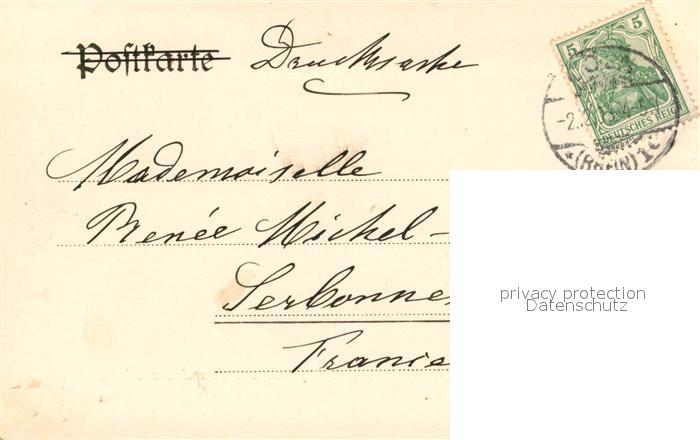 Postkarte Drucksache
5 5
DEUTSCHES REICH
-2.
(RHEIN) 1c
Mademoiselle
Renée Michel-
Serbonne
France
privacy protection
Datenschutz